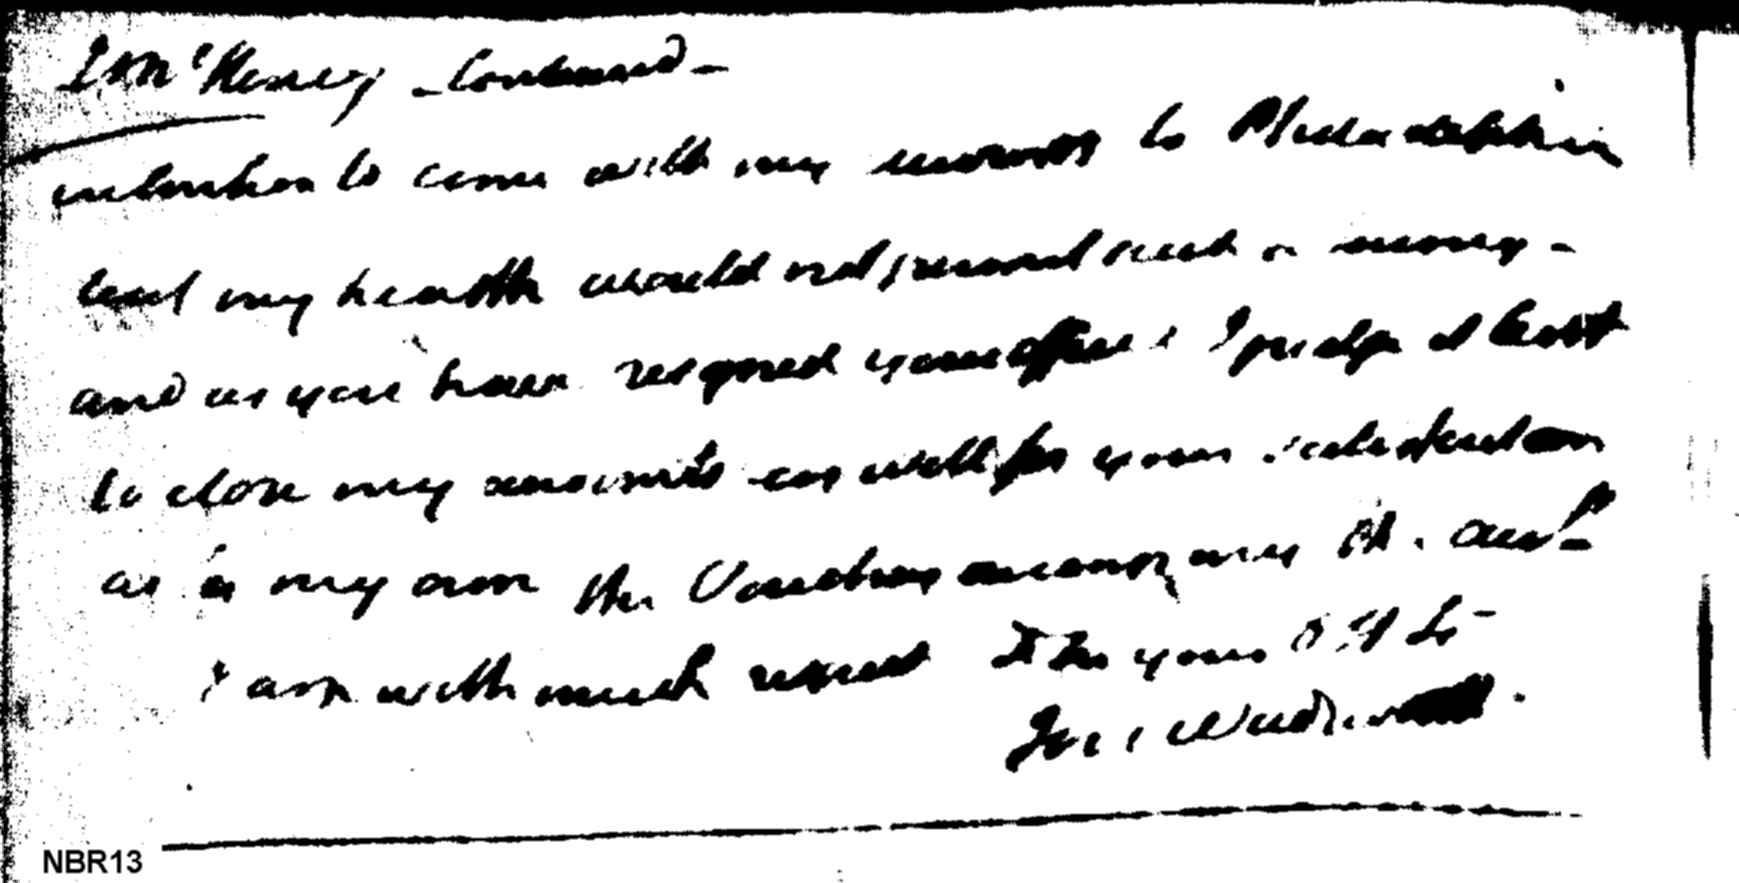 J McHenry - Continued -
intention to come with my accounts to Philadelphia
but my health would not permit such a
and as you have resigned your office I judge it best
to close my accounts as well for your satisfaction
as in my own the Vouchers accompany the acct
I am with much respect Sir your O St
NBR13